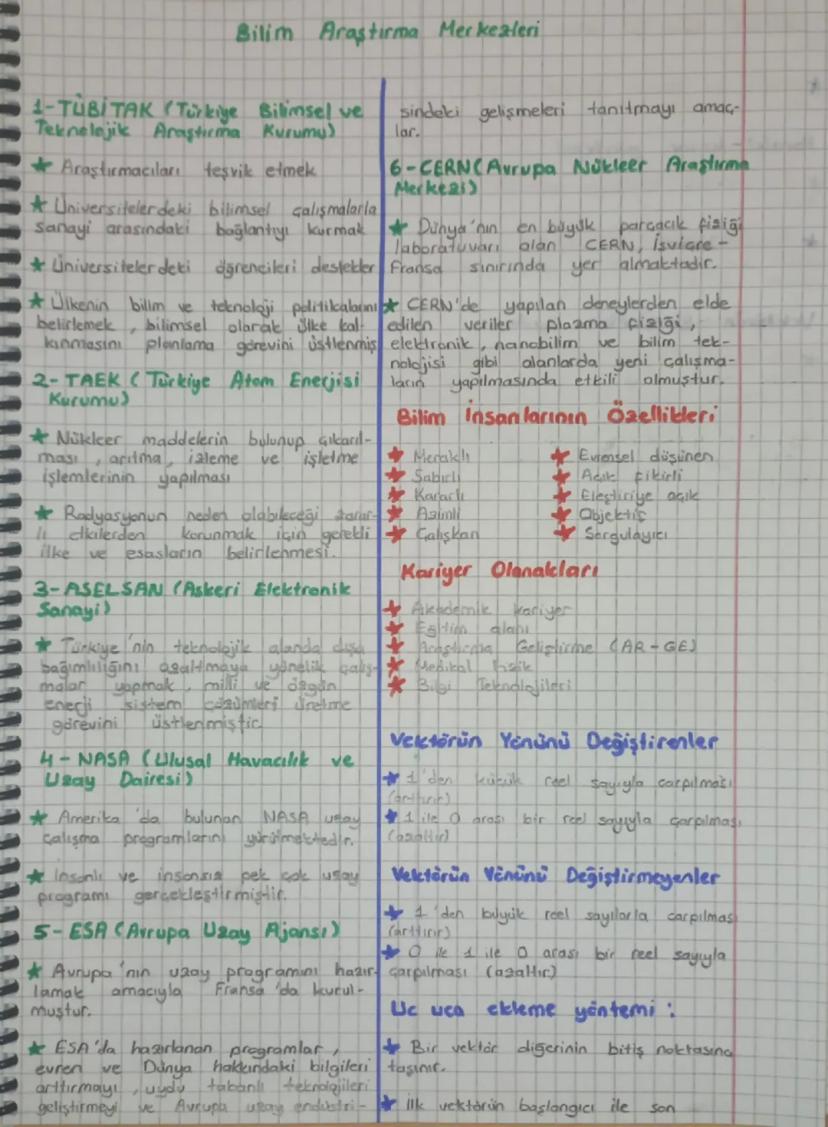 Bilim Araştırma Merkezleri
1-TÜBİTAK (Türkiye Bilimsel ve
Teknolojik Araştırma Kurumu)
★ Araştırmacıları teşvik etmek
★ Üniversitelerdeki bilimsel çalışmalarla
sanayi arasındaki bağlantıyı kurmak
★ Üniversitelerdeki öğrencileri destekler
★ Ülkenin bilim ve teknoloji politikalarını
belirlemek, bilimsel olarak ülke kal-
kınmasını planlama görevini üstlenmiş
2- TAEK (Türkiye Atom Enerjisi
Kurumu)
★ Nükleer maddelerin bulunup çıkarıl-
ması, arıtma, izleme ve işletme
işlemlerinin yapılması
★ Radyasyonun neden olabileceği zarar-
lı etkilerden korunmak için gerekli
ilke ve esasların belirlenmesi.
3-ASELSAN (Askeri Elektronik
Sanayi)
★ Türkiye'nin teknolojik alanda dışa
bağımlılığını azaltmaya yönelik çalış-
malar yapmak, milli ve özgün
enerji sistem çözümleri üretme
görevini üstlenmiştir.
4-NASA (Ulusal Havacılık ve
Uzay Dairesi)
★ Amerika'da bulunan NASA uzay
çalışma programlarını yürütmektedir.
★ İnsanlı ve insansız pek çok uzay
programı gerçekleştirmiştir.
5-ESA (Avrupa Uzay Ajansı)
★ Avrupa'nın uzay programını hazır-
lamak amacıyla Fransa'da kurul-
muştur.
★ ESA'da hazırlanan programlar,
evren ve Dünya hakkındaki bilgileri
arttırmayı, uydu tabanlı teknolojileri
geliştirmeyi ve Avrupa uzay endüstri-
sindeki gelişmeleri tanıtmayı amaç-
lar.
6-CERN (Avrupa Nükleer Araştırma
Merkezi)
★ Dünya'nın en büyük parçacık fiziği
laboratuvarı olan CERN, İsviçre-
Fransa sınırında yer almaktadır.
★ CERN'de yapılan deneylerden elde
edilen veriler plazma fiziği,
elektronik, nanobilim ve bilim tek-
nolojisi gibi alanlarda yeni çalışma-
ların yapılmasında etkili olmuştur.
Bilim İnsanlarının Özellikleri
★ Meraklı ★ Evrensel düşünen
★ Sabırlı ★ Açık fikirli
★ Kararlı ★ Eleştiriye açık
★ Azimli ★ Objektif
★ Çalışkan ★ Sorgulayıcı
Kariyer Olanakları
★ Akademik kariyer
★ Eğitim alanı
★ Araştırma Geliştirme (AR-GE)
★ Medikal fizik
★ Bilgi Teknolojileri
Vektörün Yönünü Değiştirenler
★ 1'den küçük reel sayıyla çarpılması
(arttırır)
★ 1 ile 0 arası bir reel sayıyla çarpılması
(azaltır)
Vektörün Yönünü Değiştirmeyenler
★ 1'den büyük reel sayılarla çarpılması
(arttırır)
★ 0 ile 1 ile 0 arası bir reel sayıyla
çarpılması (azaltır)
Uc uca ekleme yöntemi:
★ Bir vektör diğerinin bitiş noktasına
taşınır.
★ İlk vektörün başlangıcı ile son